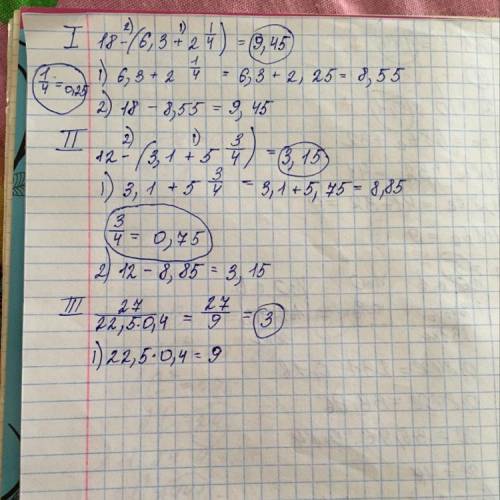 I 18 - (6,3 + 2 1/4) = 9,45
2) 1)
1/4 = 0,25
1) 6,3 + 2 1/4 = 6,3 + 2,25 = 8,55
2) 18 - 8,55 = 9,45
II 12 - (3,1 + 5 3/4) = 3,15
2) 1)
1) 3,1 + 5 3/4 = 3,1 + 5,75 = 8,85
3/4 = 0,75
2) 12 - 8,85 = 3,15
III 27/22,5·0,4 = 27/9 = 3
1) 22,5·0,4 = 9